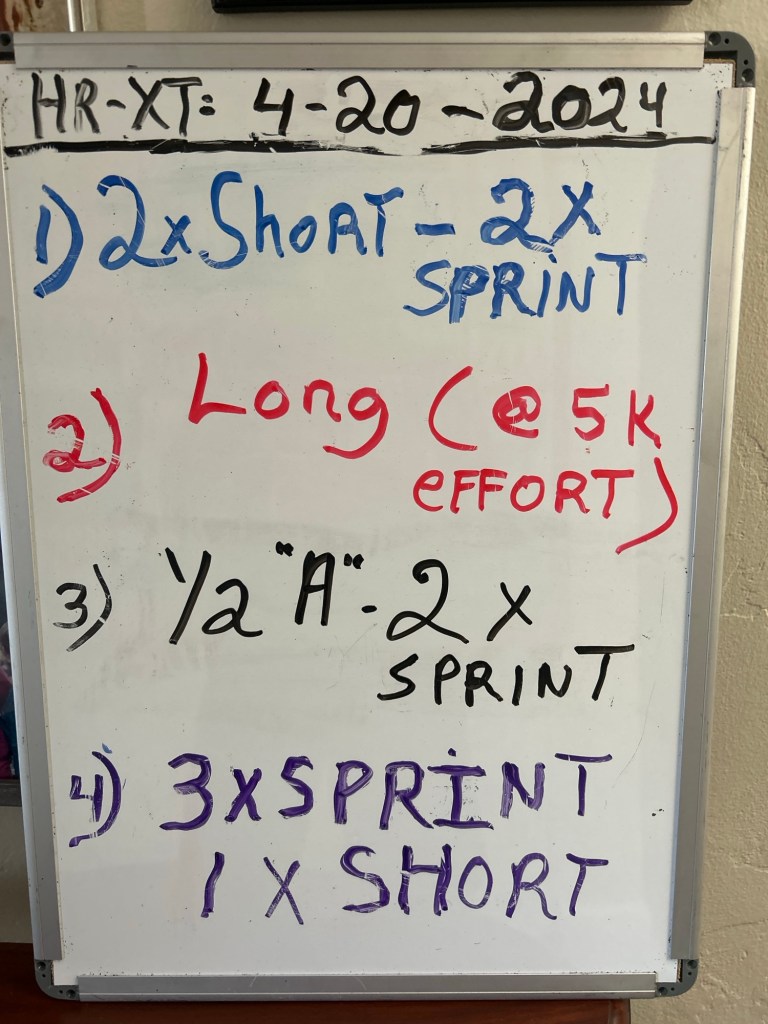 HR-XT: 4-20-2024
1) 2x ShoRT - 2x
SPRiNT
2) Long (@ 5K
eFFORT)
3) 1/2 "A" - 2 x
SPRINT
4) 3xSPRINT
1 X SHORT